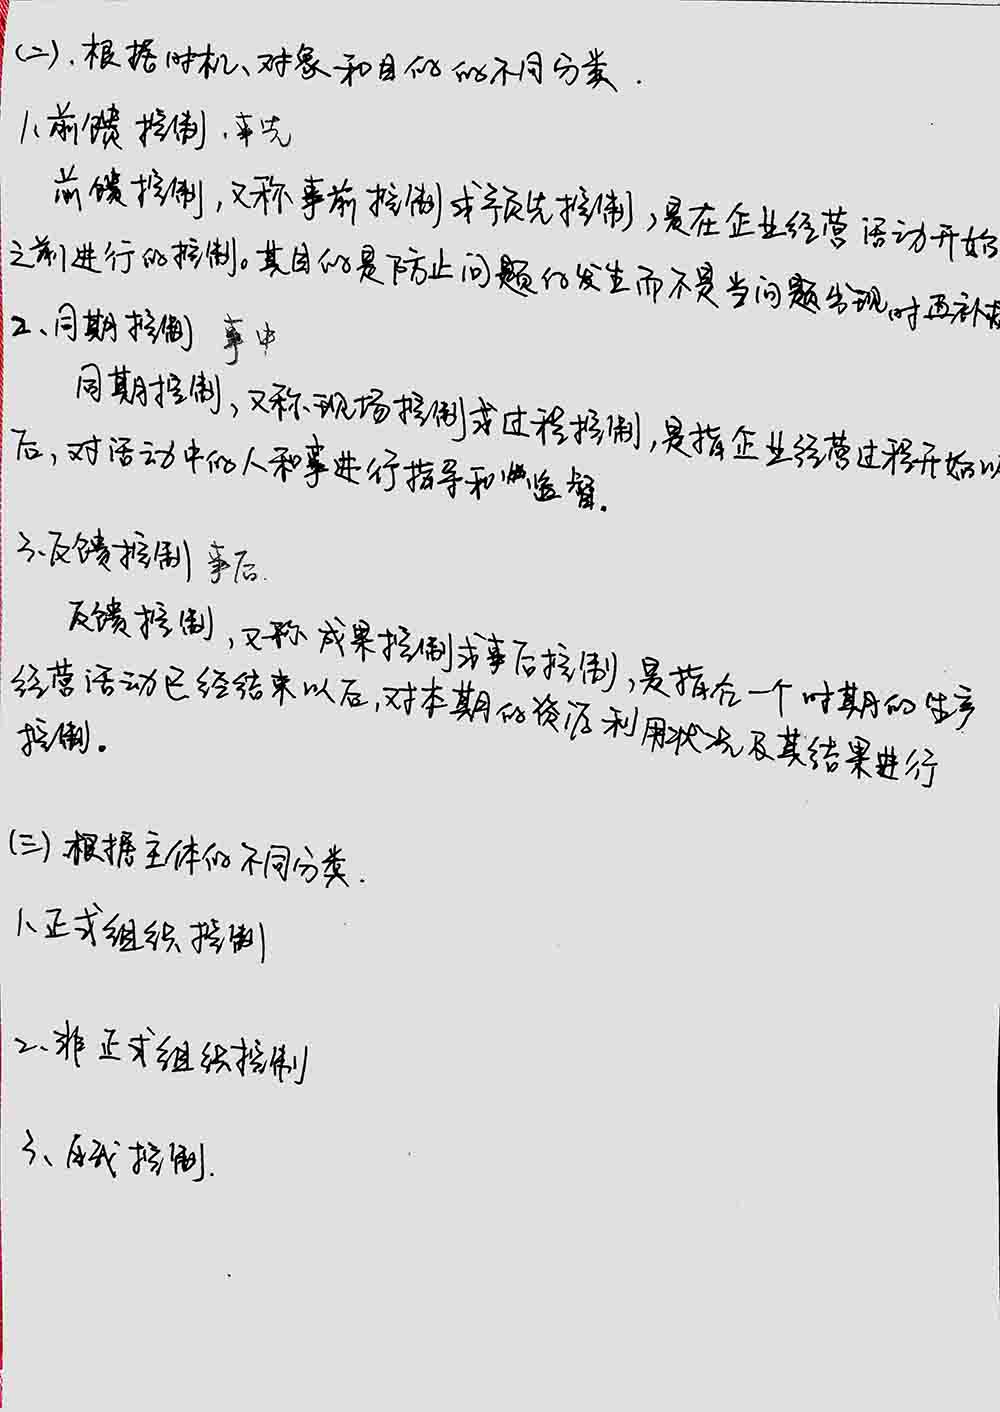 (二).根据时机、对象和目的的不同分类.
1、前馈控制.事先
前馈控制,又称事前控制或预先控制,是在企业经营活动开始
之前进行的控制。其目的是防止问题的发生而不是当问题出现时再补救
2、同期控制 事中
同期控制,又称现场控制或过程控制,是指企业经营过程开始以
后,对活动中的人和事进行指导和监督.
3、反馈控制 事后.
反馈控制,又称成果控制或事后控制,是指在一个时期的生产
经营活动已经结束以后,对本期的资源利用状况及其结果进行
控制。
(三).根据主体的不同分类.
1、正式组织控制
2、非正式组织控制
3、自我控制.